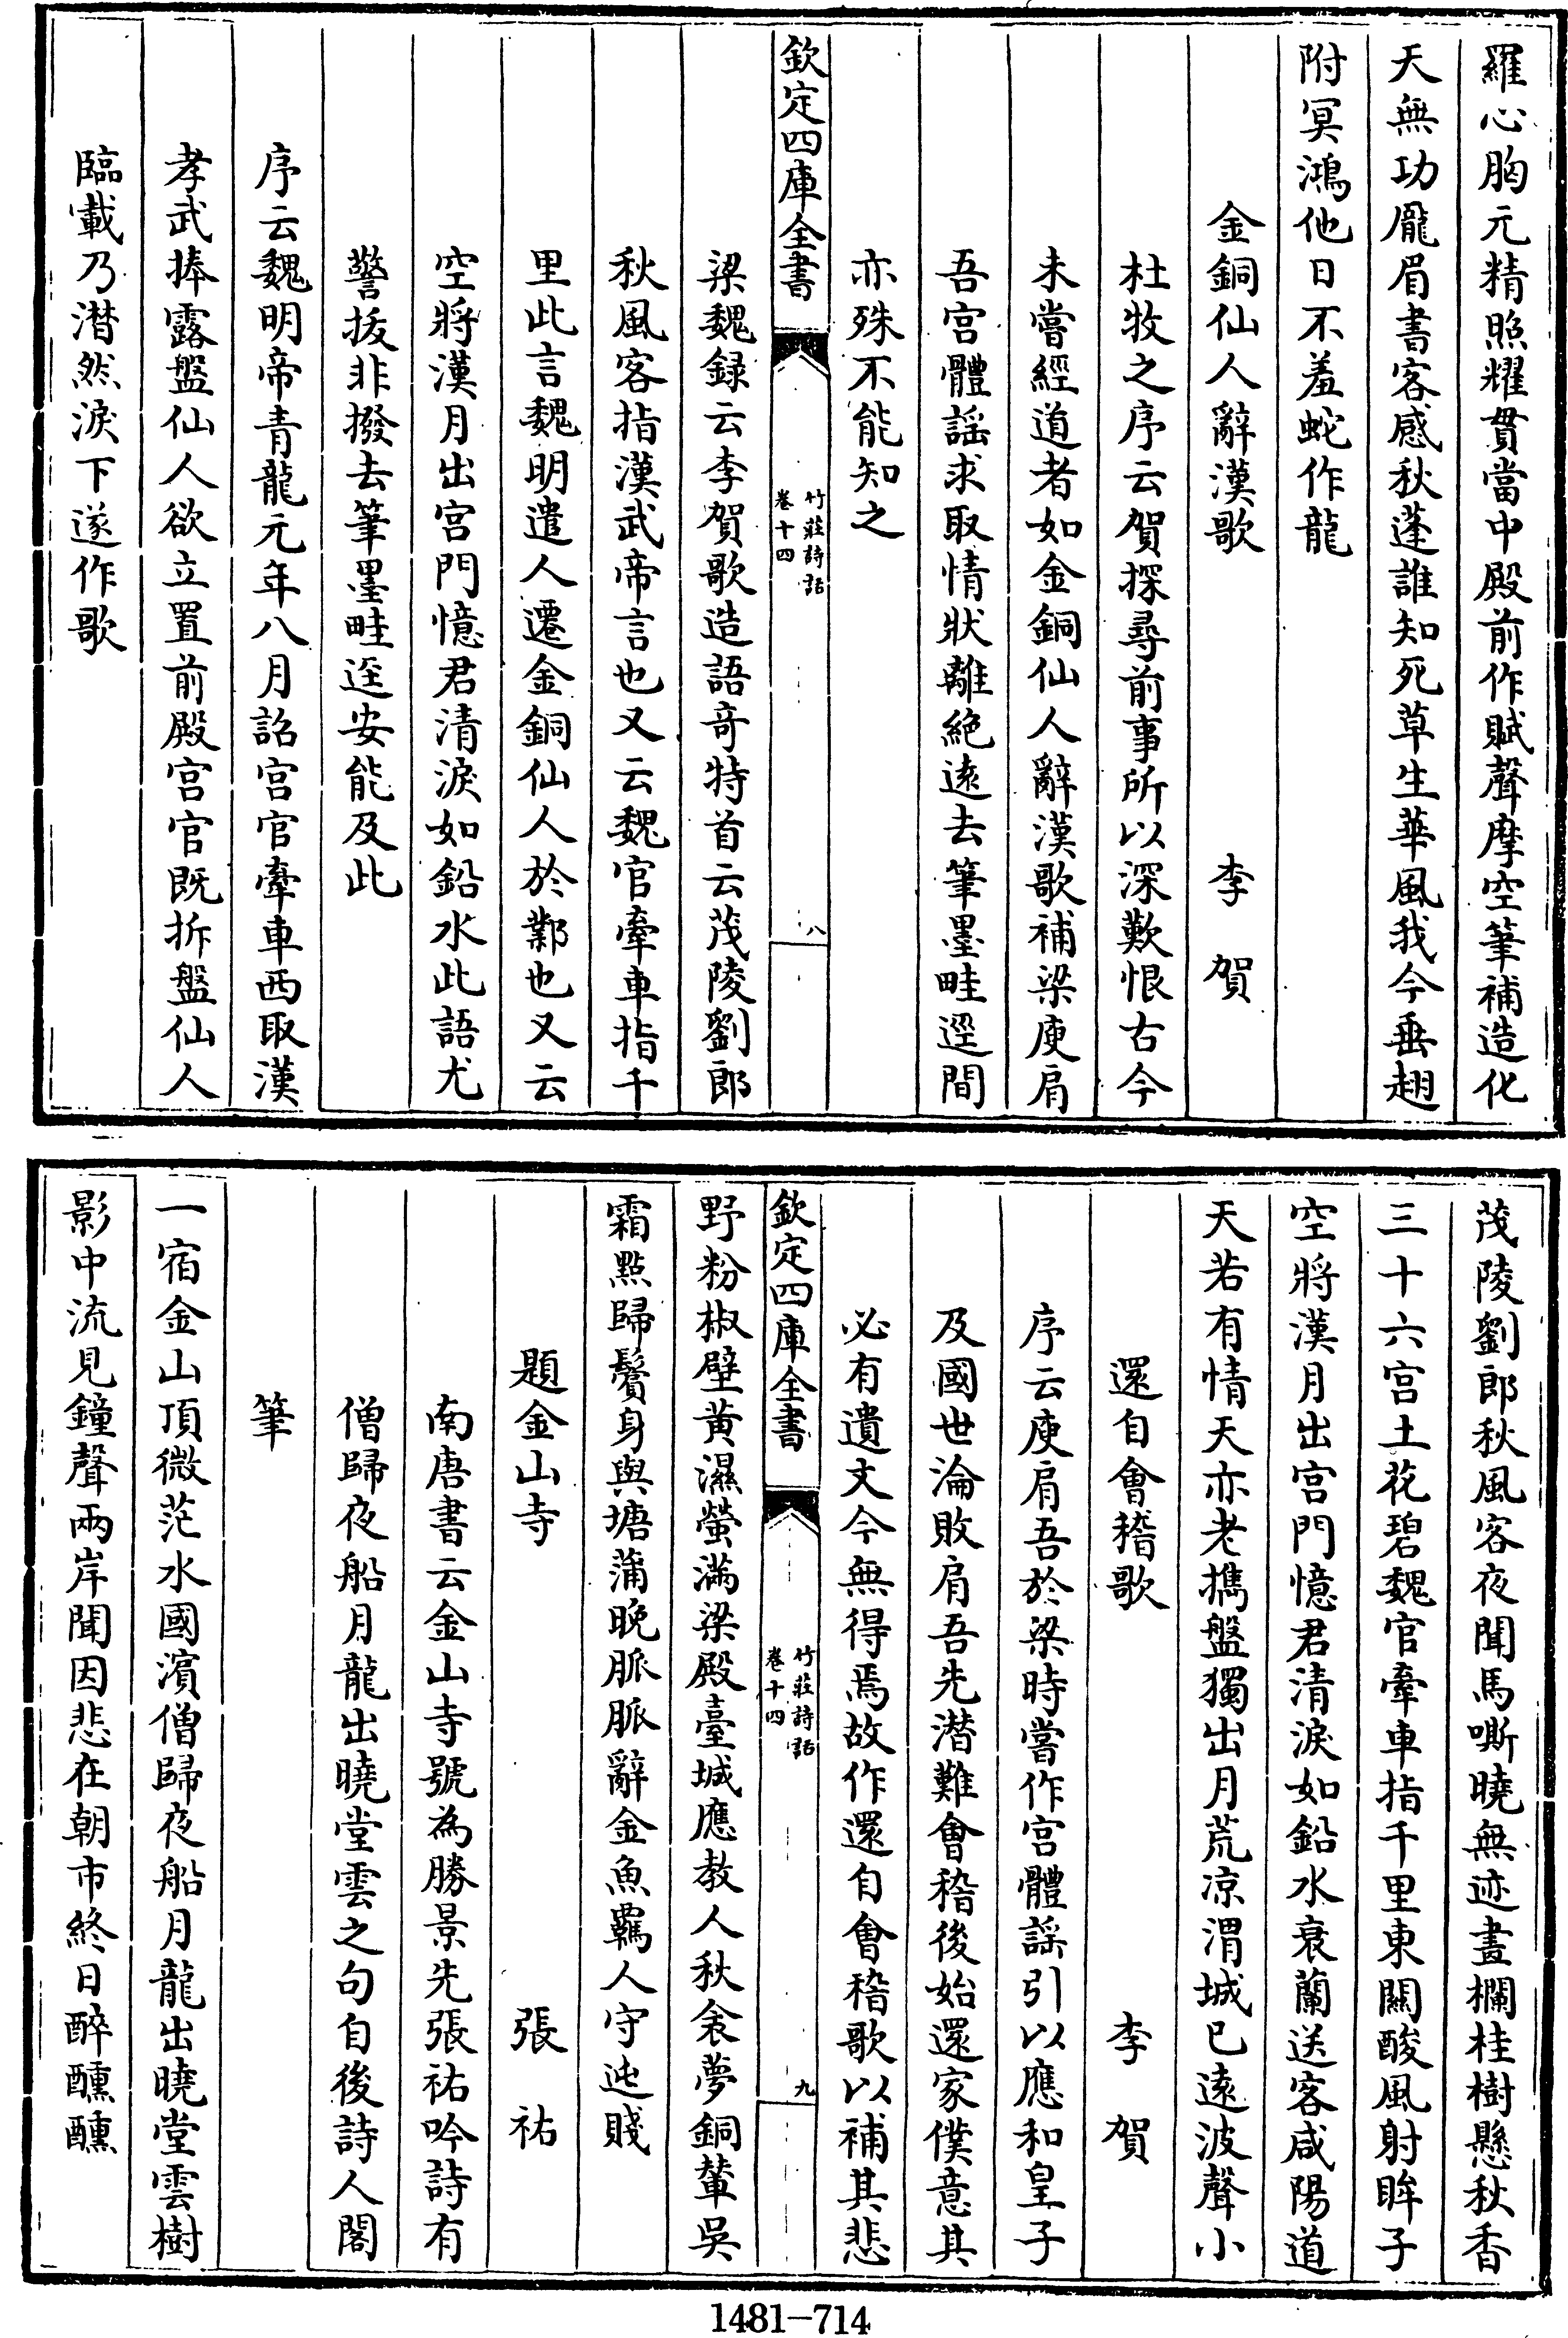 羅心胸元精照耀貫當中殿前作賦聲摩空筆補造化
天無功龎眉書客感秋蓬誰知死草生華風我今垂翅
附冥鴻他日不羞蛇作龍
金銅仙人辭漢歌 李賀
杜牧之序云賀探尋前事所以深歎恨古今
未嘗經道者如金銅仙人辭漢歌補梁庾肩
吾宫體謡求取情狀離絶逺去筆墨畦逕間
亦殊不能知之
欽定四庫全書 竹莊詩話 卷十四 八
梁魏録云李賀歌造語竒特首云茂陵劉郎
秋風客指漢武帝言也又云魏官牽車指千
里此言魏明遣人遷金銅仙人於鄴也又云
空將漢月出宫門憶君清淚如鉛水此語尤
警拔非撥去筆墨畦逕安能及此
序云魏明帝青龍元年八月詔宫官牽車西取漢
孝武捧露盤仙人欲立置前殿宫官既拆盤仙人
臨載乃潸然淚下遂作歌
茂陵劉郎秋風客夜聞馬嘶曉無迹畫欄桂樹懸秋香
三十六宫土花碧魏官牽車指千里東闗酸風射眸子
空將漢月出宫門憶君清淚如鉛水衰蘭送客咸陽道
天若有情天亦老攜盤獨出月荒凉渭城已逺波聲小
還自會稽歌 李賀
序云庾肩吾於梁時嘗作宫體謡引以應和皇子
及國世淪敗肩吾先潛難會稽後始還家僕意其
必有遺文今無得焉故作還自會稽歌以補其悲
欽定四庫全書 竹莊詩話 卷十四 九
野粉椒壁黄濕螢滿梁殿臺城應教人秋衾夢銅輦吳
霜點歸鬢身與塘蒲晚脈脈辭金魚羈人守迍賤
題金山寺 張祐
南唐書云金山寺號為勝景先張祐吟詩有
僧歸夜船月龍出曉堂雲之句自後詩人閣
筆
一宿金山頂微茫水國濵僧歸夜船月龍出曉堂雲樹
影中流見鐘聲兩岸聞因悲在朝市終日醉醺醺
1481-714